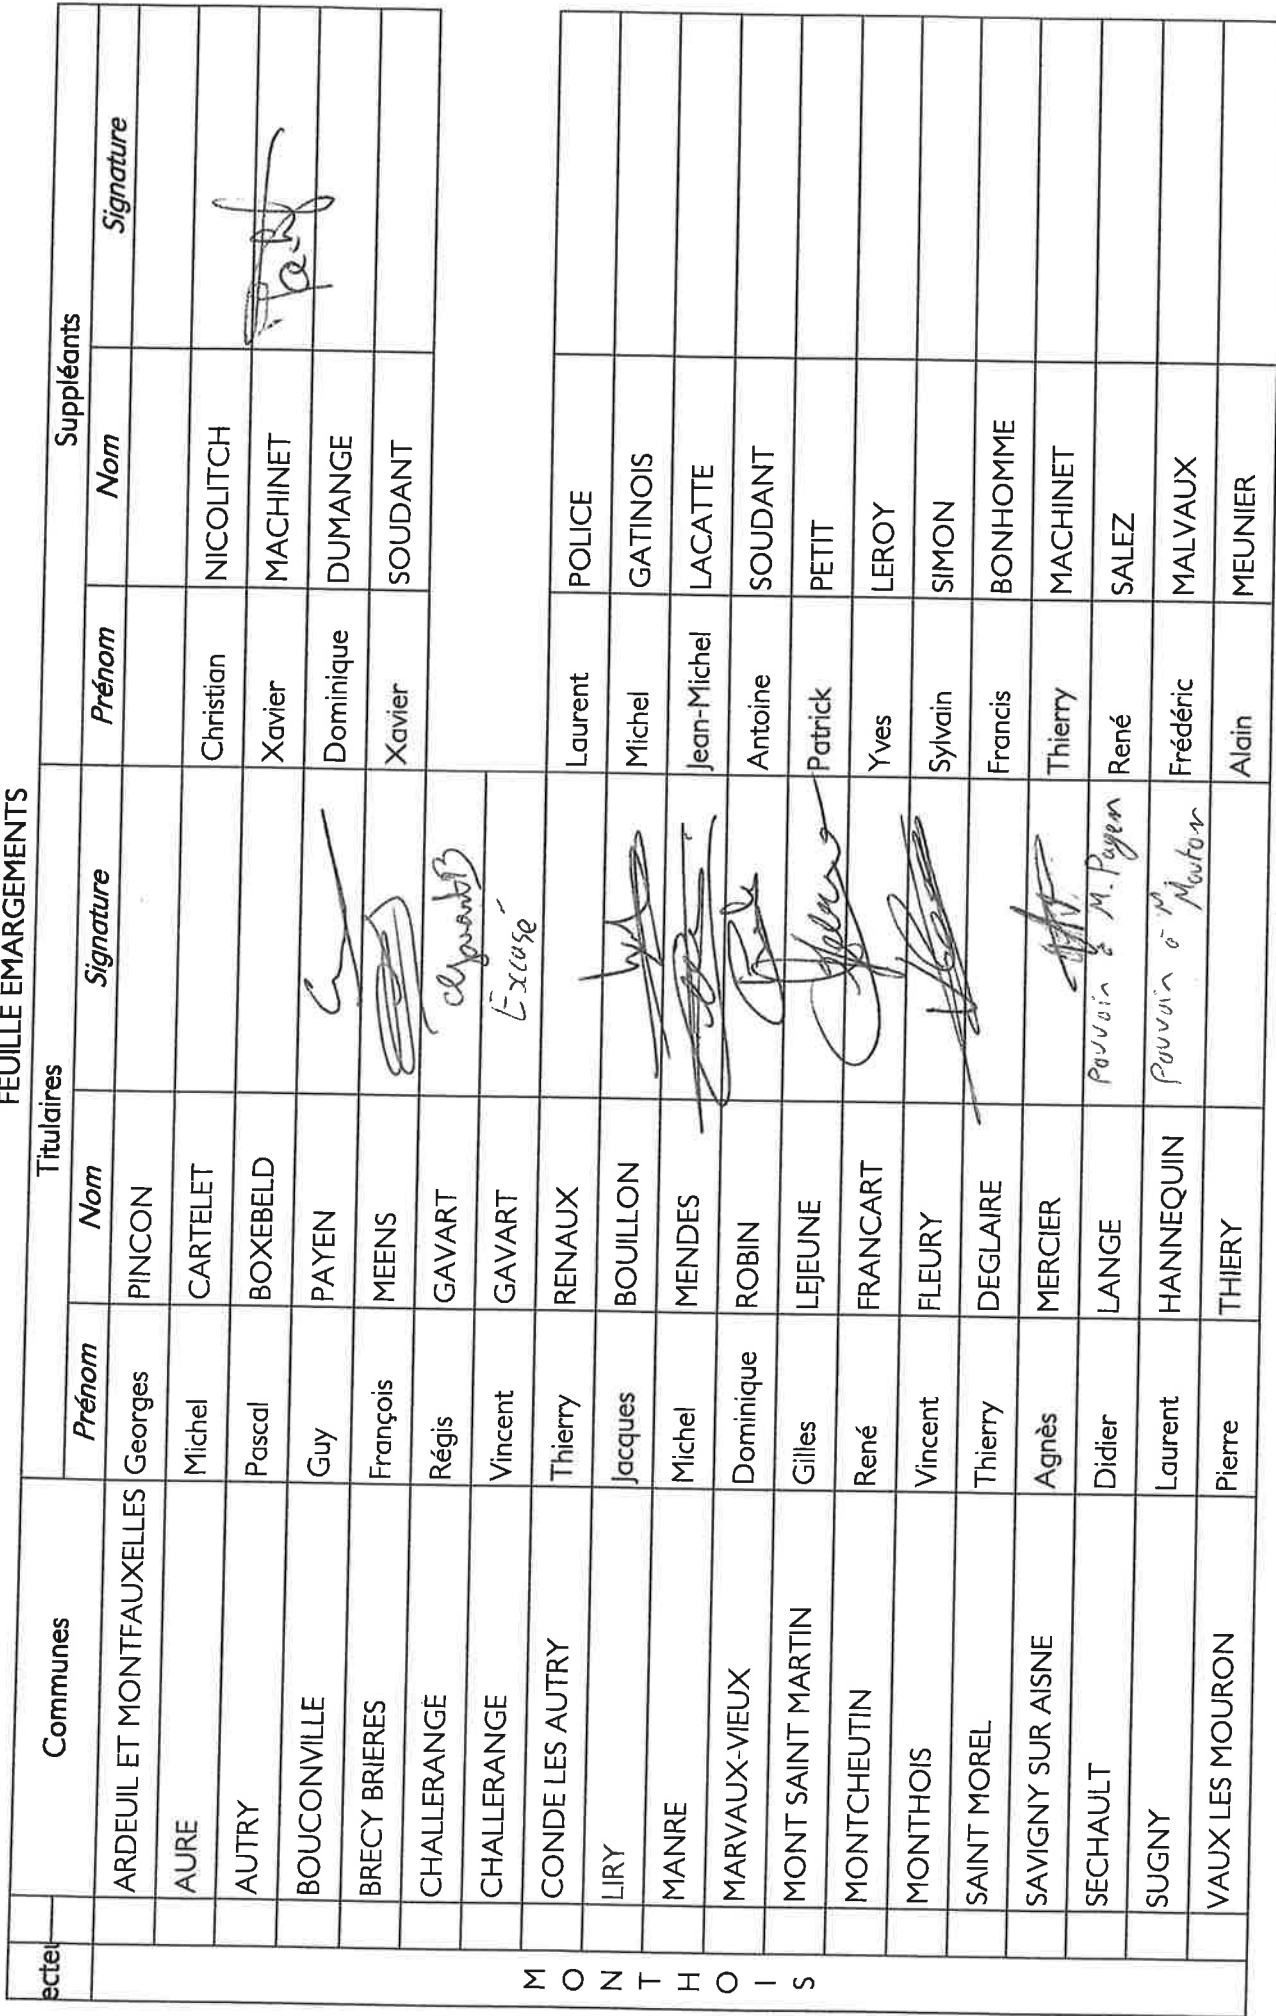 FEUILLE EMARGEMENTS
Titulaires Suppléants
ecteu Communes Prénom Nom Signature Prénom Nom Signature
MONTHOIS
ARDEUIL ET MONTFAUXELLES Georges PINCON
AURE Michel CARTELET Christian NICOLITCH
AUTRY Pascal BOXEBELD Xavier MACHINET
BOUCONVILLE Guy PAYEN Dominique DUMANGE
BRECY BRIERES François MEENS Xavier SOUDANT
CHALLERANGE Régis GAVART
CHALLERANGE Vincent GAVART Excusé
CONDE LES AUTRY Thierry RENAUX Laurent POLICE
LIRY Jacques BOUILLON Michel GATINOIS
MANRE Michel MENDES Jean-Michel LACATTE
MARVAUX-VIEUX Dominique ROBIN Antoine SOUDANT
MONT SAINT MARTIN Gilles LEJEUNE Patrick PETIT
MONTCHEUTIN René FRANCART Yves LEROY
MONTHOIS Vincent FLEURY Sylvain SIMON
SAINT MOREL Thierry DEGLAIRE Francis BONHOMME
SAVIGNY SUR AISNE Agnès MERCIER Thierry MACHINET
SECHAULT Didier LANGE Pouvoir à M. Payen René SALEZ
SUGNY Laurent HANNEQUIN Pouvoir à M. Mouton Frédéric MALVAUX
VAUX LES MOURON Pierre THIERY Alain MEUNIER